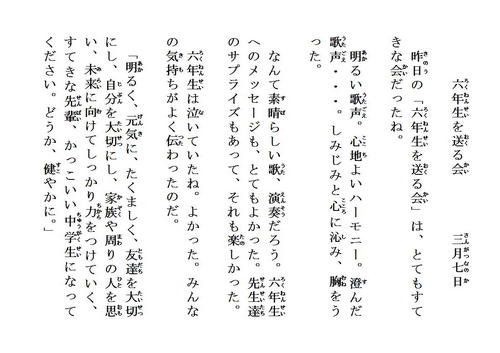 六年生を送る会　　　三月七日
昨日の「六年生を送る会」は、とてもすて
きな会だったね。
明るい歌声。心地よいハーモニー。澄んだ
歌声・・・。しみじみと心に沁み、胸をう
った。
なんて素晴らしい歌、演奏だろう。六年生
へのメッセージも、とてもよかった。先生達
のサプライズもあって、それも楽しかった。
六年生は泣いていたね。よかった。みんな
の気持ちがよく伝わったのだ。
「明るく、元気に、たくましく、友達を大切
にし、自分を大切にし、家族や周りの人を思
い、未来に向けてしっかり力をつけていく、
すてきな先輩、かっこいい中学生になって
ください。どうか、健やかに。」